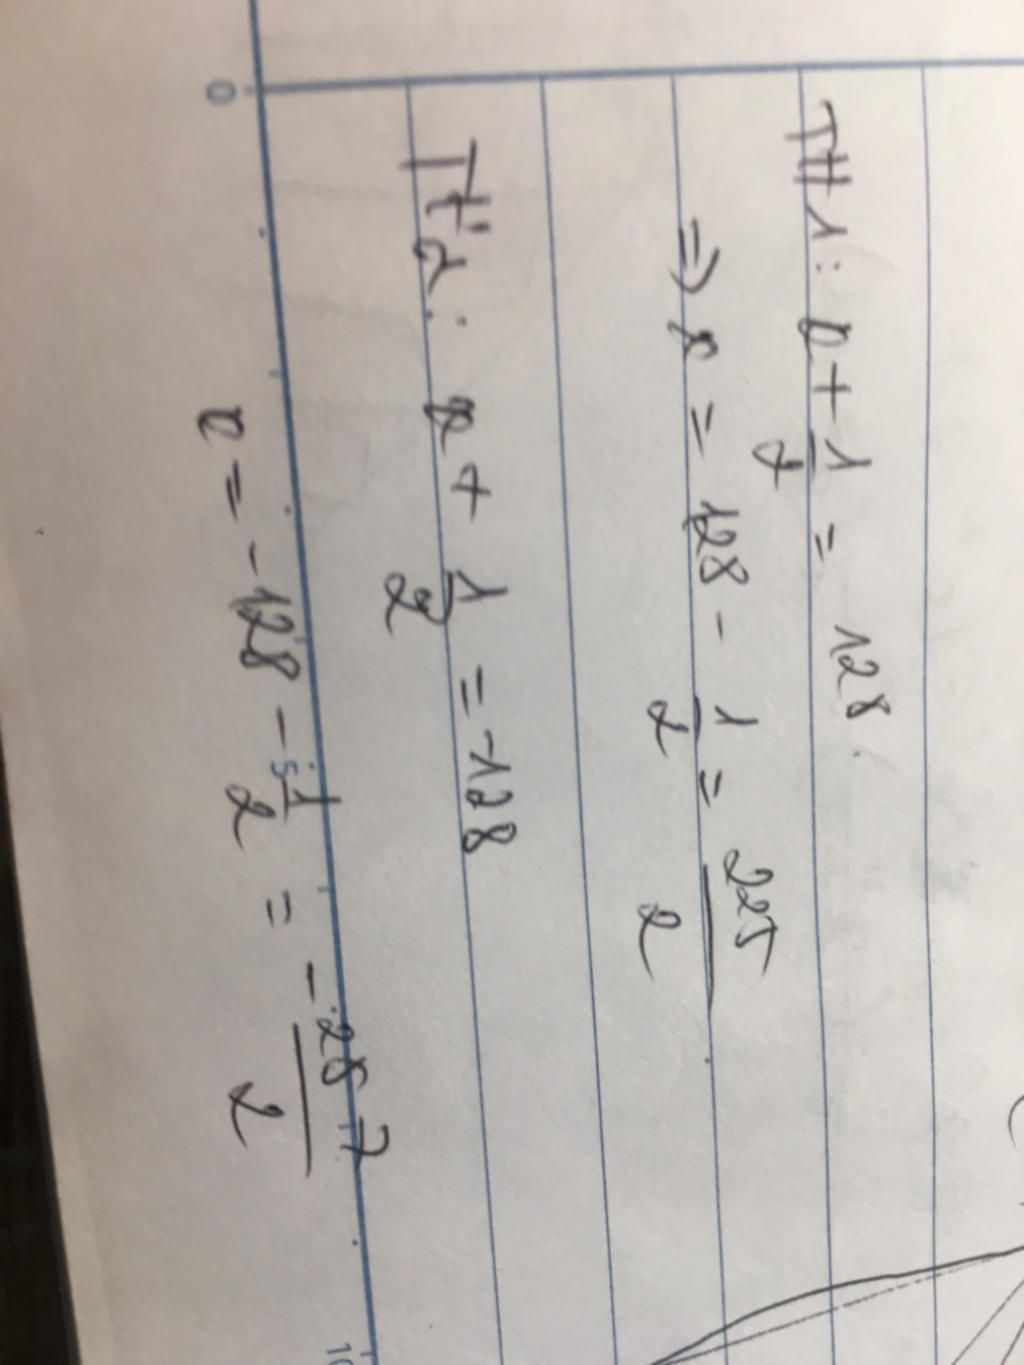 TH1: x + 1/2 = 128.
=> x = 128 - 1/2 = 225/2
TH2: x + 1/2 = -128
x = -128 - 1/2 = -287/2
0
5
10